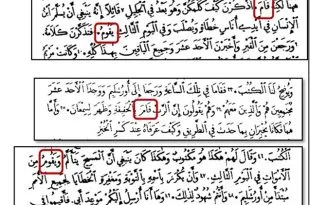 ههنا لكنه قام اذكرن كيف كلمكن وهو بعد في الجليل قائلا انه ينبغي ان يسلم ابن
الانسان في ايدي اناس خطاة ويصلب وفي اليوم الثالث يقوم فتذكرن كلامه
ورجعن من القبر واخبرن الاحد عشر وجميع الباقين بهذا كله وكانت مريم
ويوضح لنا الكتب فقاما في تلك الساعة ورجعا الى اورشليم ووجدا الاحد عشر
مجتمعين هم والذين معهم وهم يقولون ان الرب قام بالحقيقة وظهر لسمعان واما
هما فكانا يخبران بما حدث في الطريق وكيف عرفاه عند كسر الخبز
الكتب وقال لهم هكذا هو مكتوب وهكذا كان ينبغي ان المسيح يتألم ويقوم من
الاموات في اليوم الثالث وان يكرز باسمه بالتوبة ومغفرة الخطايا لجميع الامم
مبتدأ من اورشليم وانتم شهود لذلك وها انا ارسل اليكم موعد ابي فاقيموا في